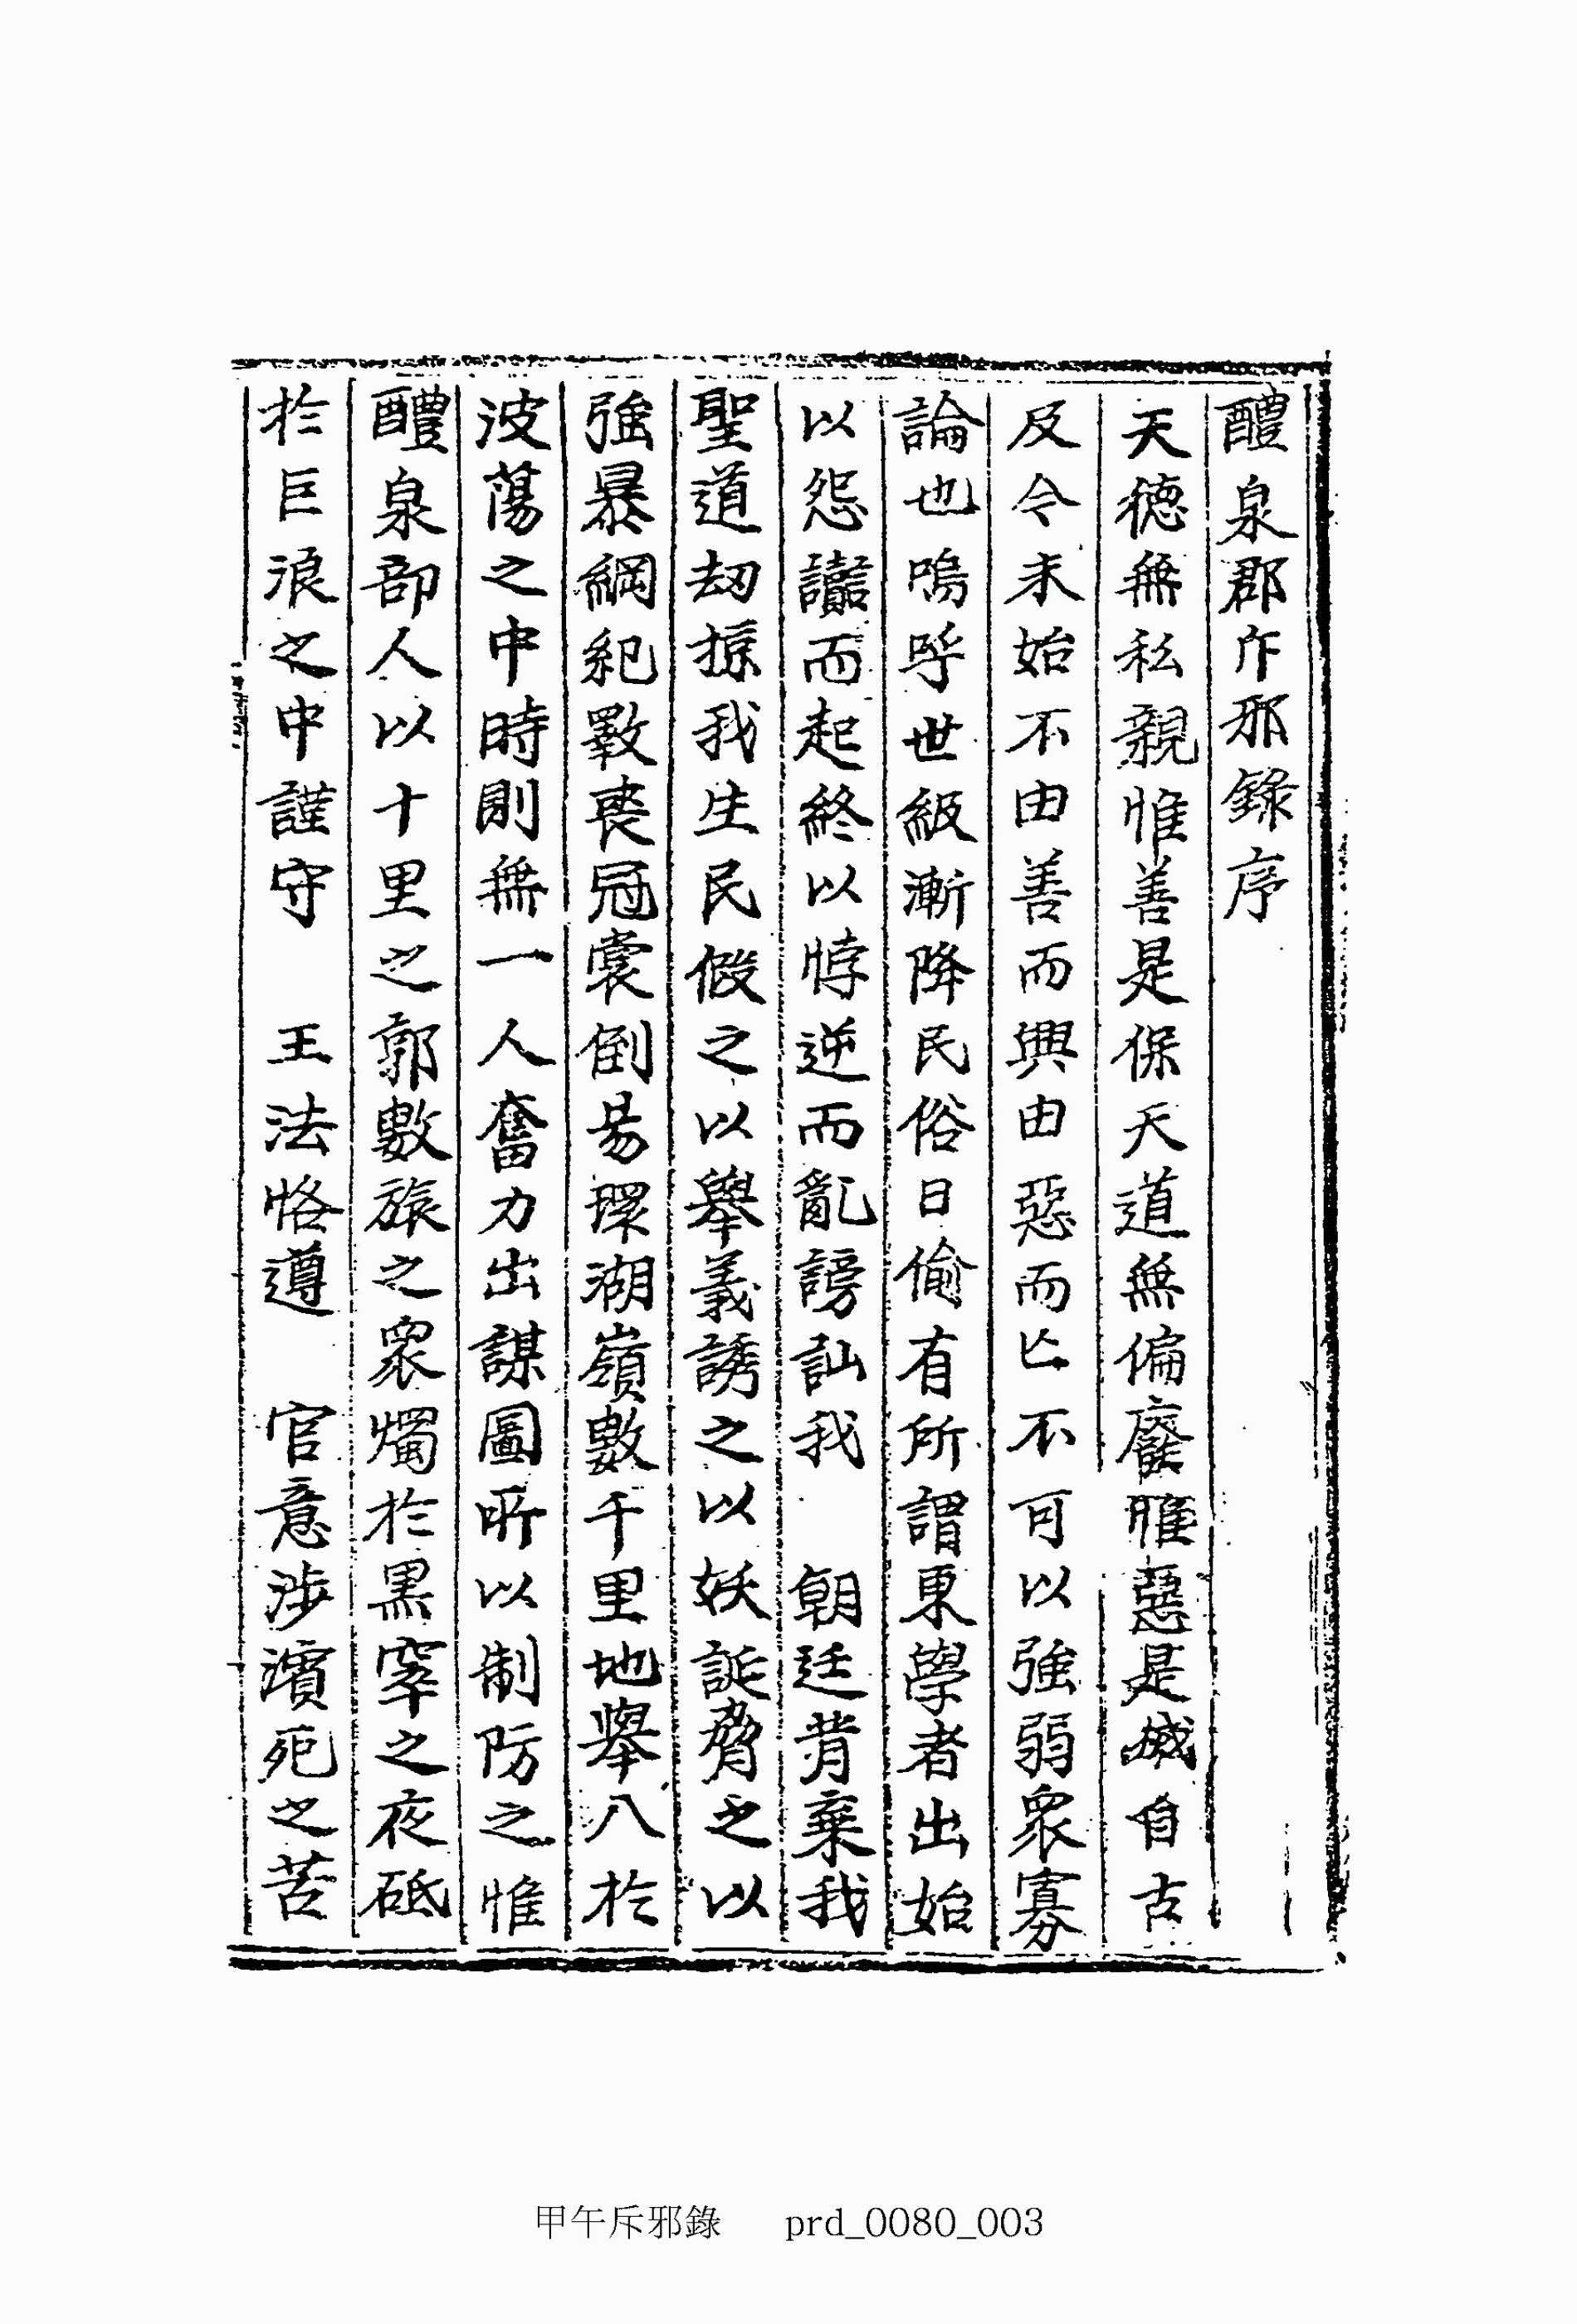 醴泉郡斥邪錄序
天德無私親惟善是保天道無偏廢惟惡是滅自古
及今未始不由善而興由惡而亡不可以強弱衆寡
論也嗚呼世級漸降民俗日偷有所謂東學者出始
以怨讟而起終以悖逆而亂謗訕我 朝廷背棄我
聖道劫掠我生民假之以擧義誘之以妖誕脅之以
強暴綱紀斁喪冠裳倒易環湖嶺數千里地擧入於
波蕩之中時則無一人奮力出謀圖所以制防之惟
醴泉郡人以十里之郭數旅之衆燭於黑窣之夜砥
於巨浪之中謹守 王法恪遵 官意涉濱死之苦
甲午斥邪錄 prd_0080_003